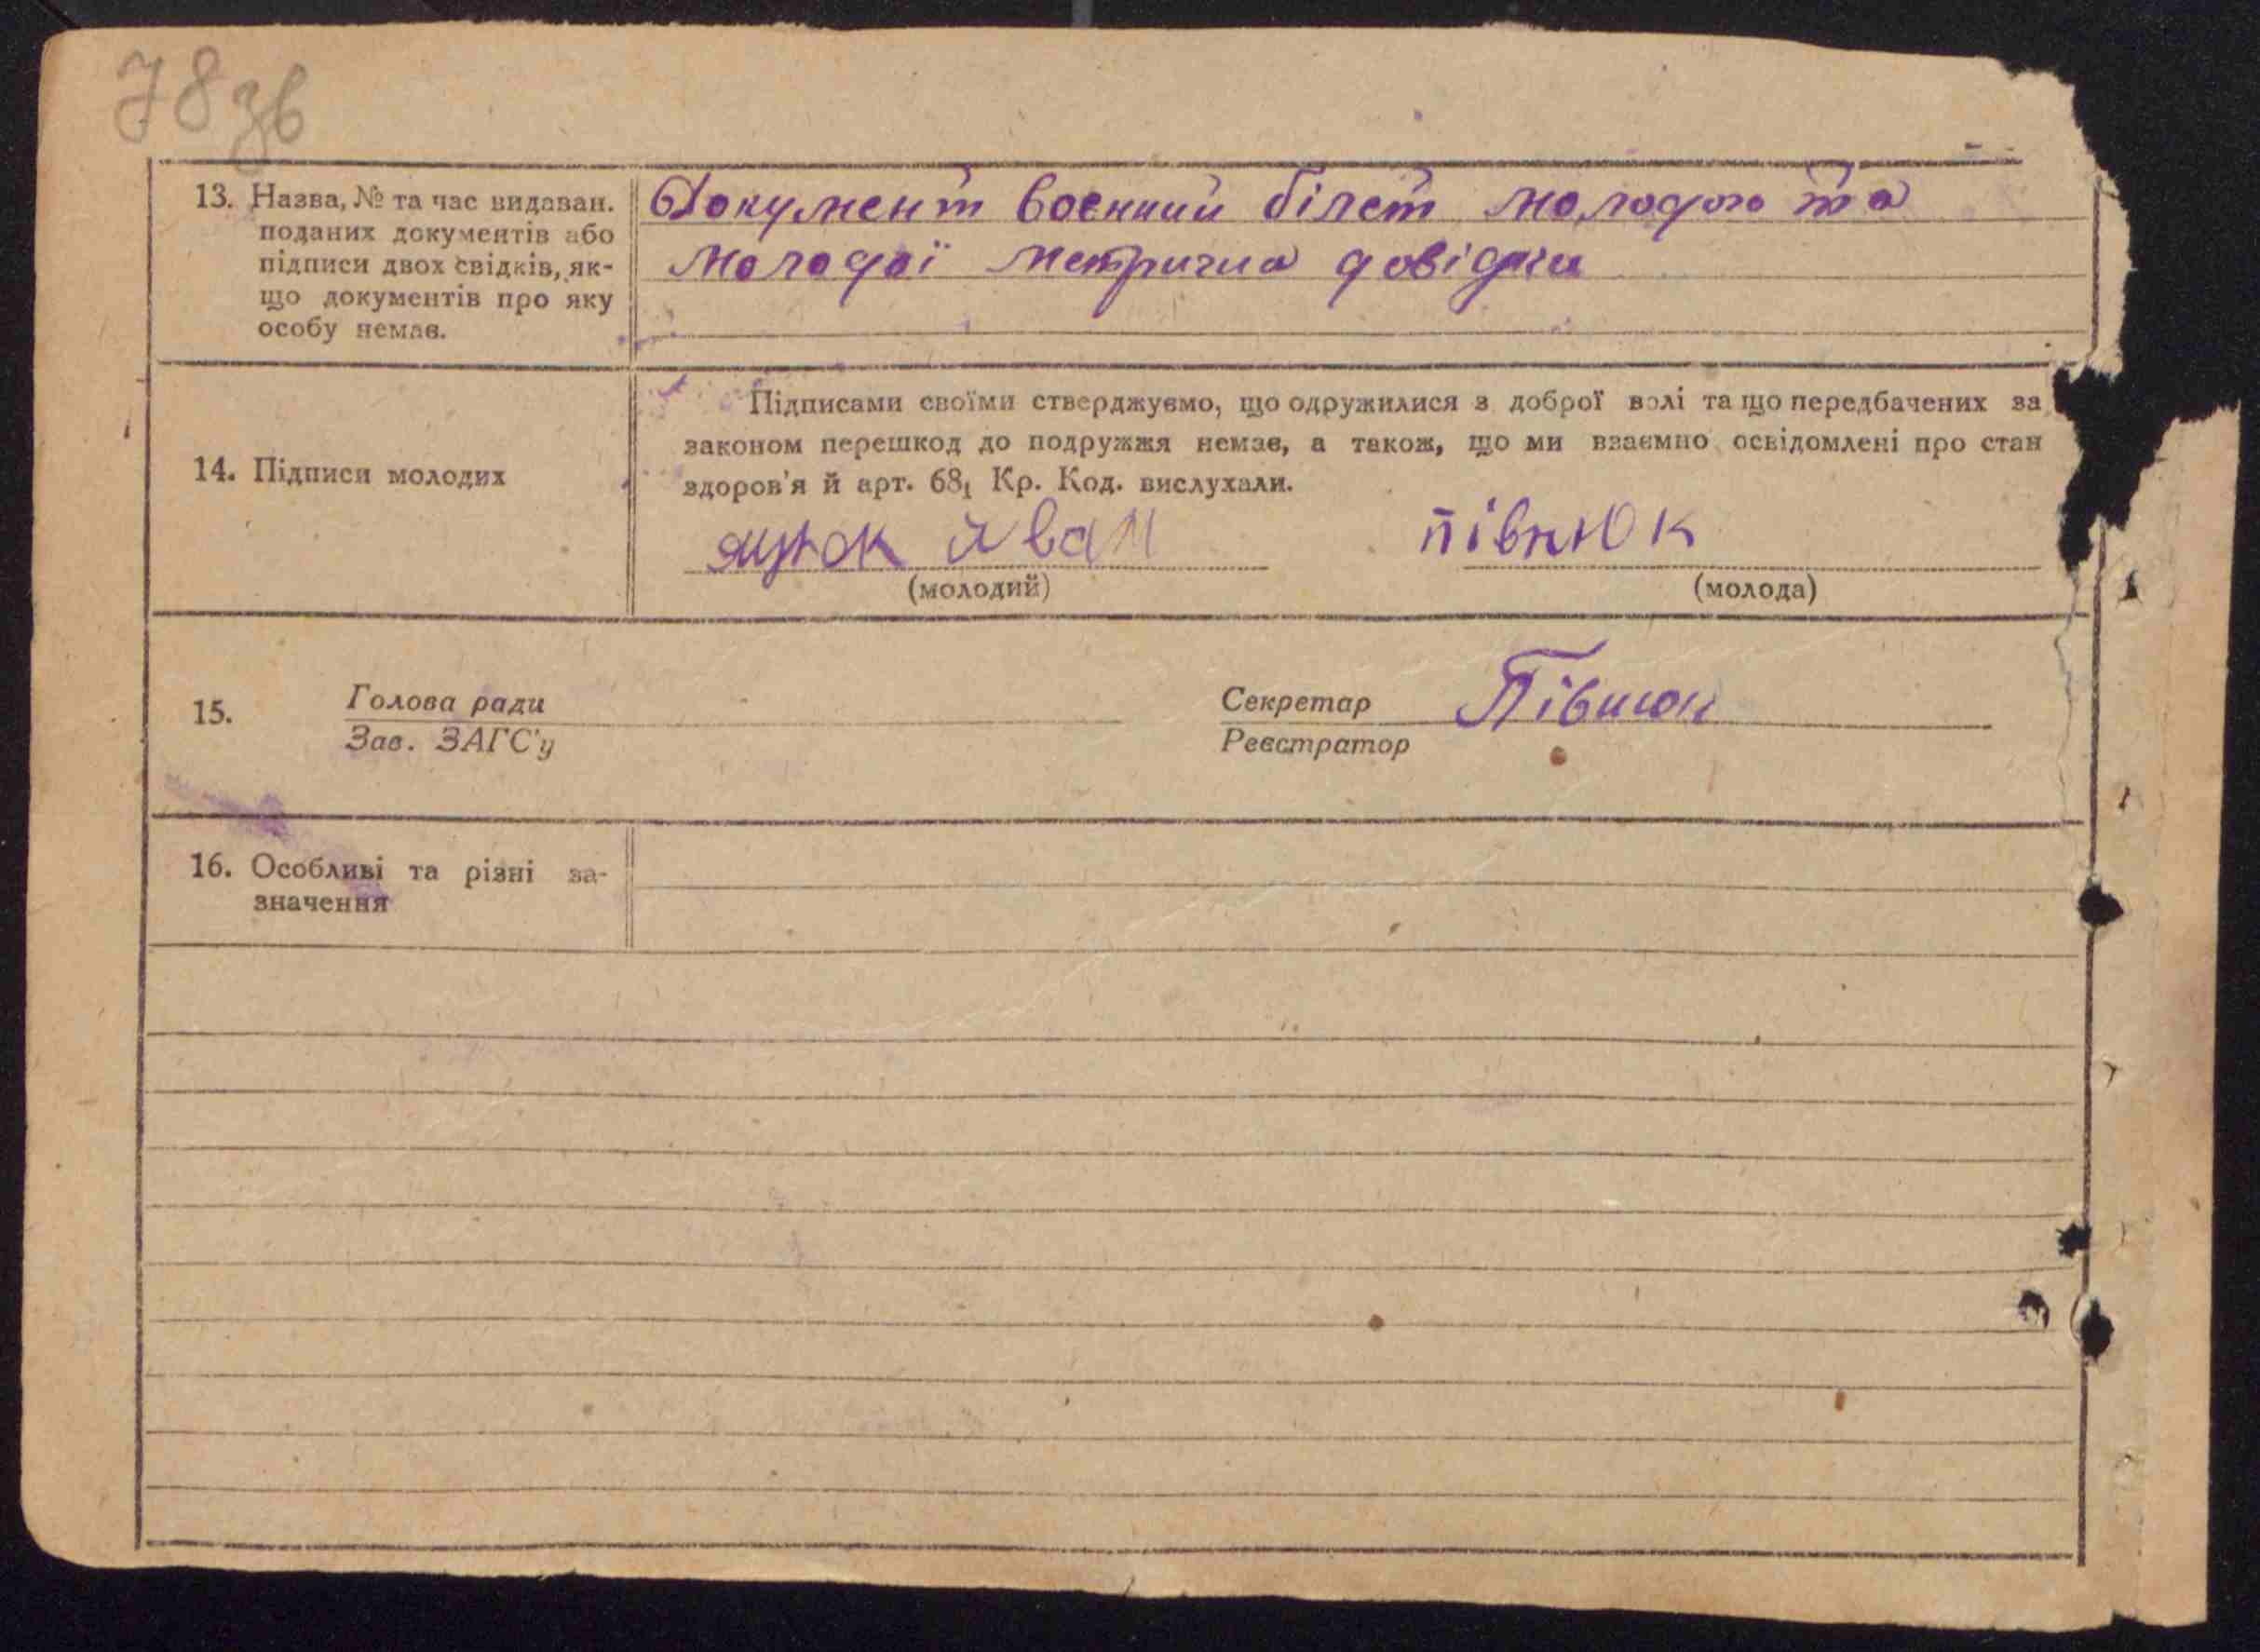 78зв
13. Назва, № та час видаван.
поданих документів або
підписи двох свідків, як-
що документів про яку
особу немає.
Документ воєнний білет молодого та
молодої метрична довідка
14. Підписи молодих
Підписами своїми стверджуємо, що одружилися з доброї волі та що передбачених за
законом перешкод до подружжя немає, а також, що ми взаємно освідомлені про стан
здоров'я й арт. 68₁ Кр. Код. вислухали.
Іван півнюк
(молодий) (молода)
15. Голова ради Секретар Півнюк
Зав. ЗАГС'у Реєстратор
16. Особливі та різні за-
значення